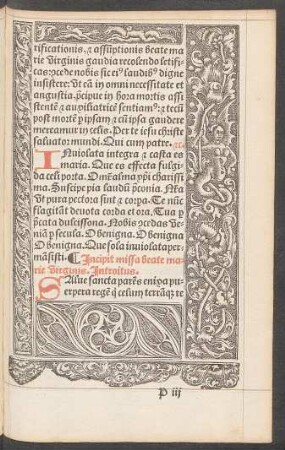 rificationis. ⁊ assũptionis beate ma
rie virginis gaudia recolendo letifi-
cas: ꝯcede nobis sic ei⁹ laudib⁹ digne
insistere: vt eã in omni necessitate et
angustia p̃cipue in hora mortis assi
stentẽ ⁊ auxiliatricẽ sentiam⁹: ⁊ te cũ
post mortẽ p ipsam ⁊ cũ ipsa gaudere
mereamur in celis. Per te iesu christe
saluator mundi. Qui cum patre. ⁊c.
INuiolata integra ⁊ casta es
maria. Que es effecta fulgi-
da celi porta. O m̃r alma xp̃i charissi
ma. Suscipe pia laudũ p̃conia. Nr̃a
vt pura pectora sint ⁊ corpa. Te nũc
flagitãt deuota corda et ora. Tua p
p̃cata dulcissona. Nobis ꝯcedas ve-
niã p secula. O benigna. O benigna
O benigna. Que sola inuiolata per-
mãsisti. ¶ Incipit missa beate ma
rie virginis. Introitus.
SAlue sancta parẽs enixa pu-
erpera regẽ q̃ celum terrãq̃ re
P iij